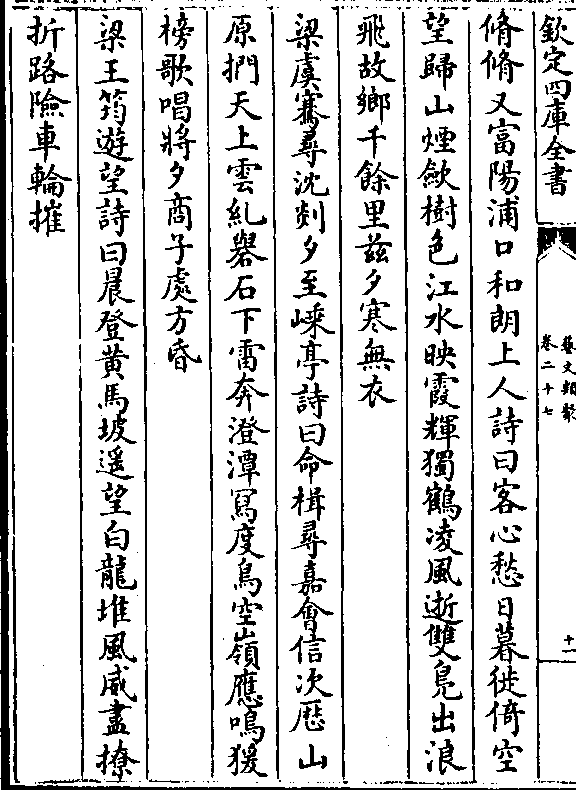 欽定四庫全書
藝文類聚
卷二十七
十一
脩脩又富陽浦口和朗上人詩曰客心愁日暮徙倚空
望歸山煙歛樹色江水映霞輝獨鶴凌風逝雙鳧出浪
飛故鄉千餘里兹夕寒無衣
梁虞騫尋沈剡夕至嵊亭詩曰命楫尋嘉會信次歴山
原捫天上雲糺礐石下雷奔澄潭冩度鳥空嶺應鳴猨
榜歌唱將夕商子處方昏
梁王筠遊望詩曰晨登黄馬坡遥望白龍堆風威盡撩
折路險車輪摧